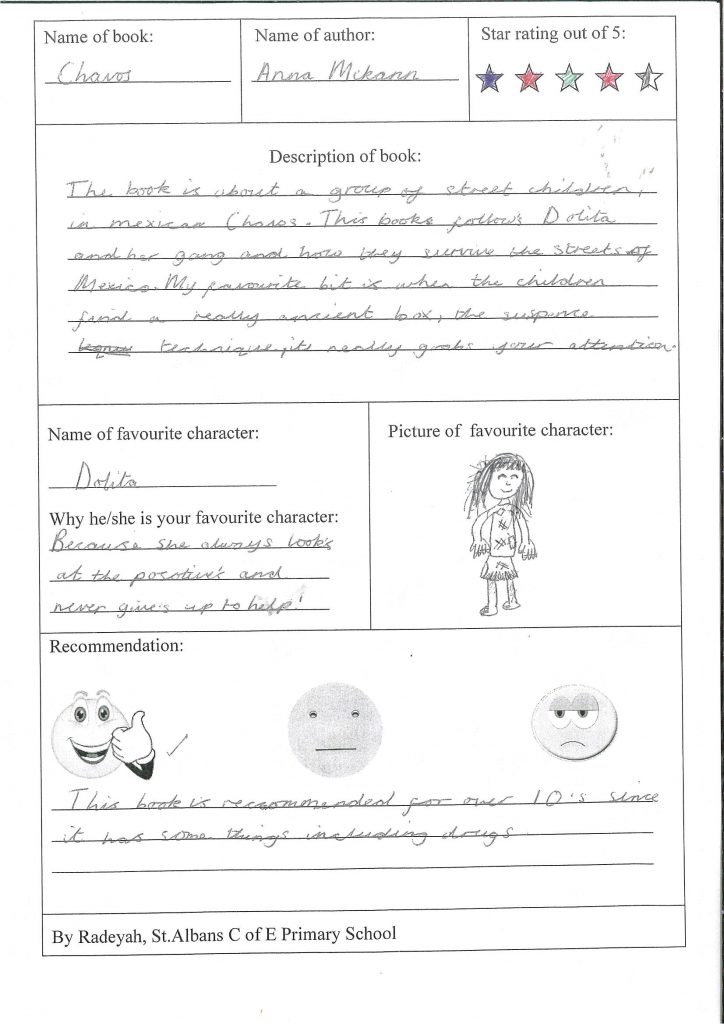 Name of book:
Chavos
Name of author:
Anna Mckann
Star rating out of 5:
Description of book:
The book is about a group of street children,
in mexican Chavos. This books follow's Dolita
and her gang and how they survive the streets of
Mexico. My favourite bit is when the children
find a really ancient box, the suspence
technique, its really grabs your attention.
Name of favourite character:
Dolita
Why he/she is your favourite character:
Because she always look's
at the posotive's and
never give's up to help!
Picture of favourite character:
Recommendation:
This book is recommended for over 10's since
it has some things including drugs
By Radeyah, St.Albans C of E Primary School